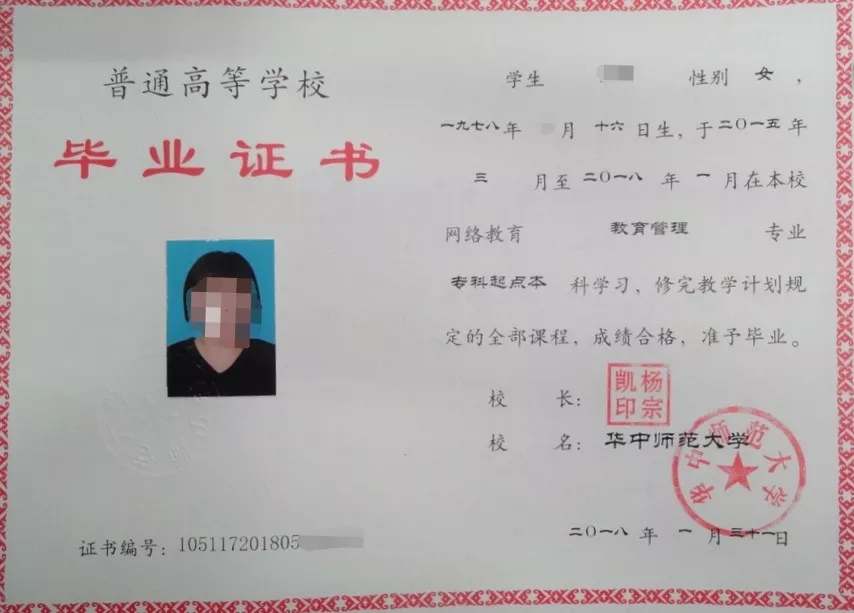 普通高等学校
毕业证书
证书编号：105117201805
学生 性别 女，
一九七八年 月 十六 日生，于二〇一五年
三 月至二〇一八 年 一 月在本校
网络教育 教育管理 专业
专科起点本 科学习，修完教学计划规
定的全部课程，成绩合格，准予毕业。
校 长：
杨宗凯印
校 名：华中师范大学
华中师范大学
二〇一八 年 一 月 三十一日